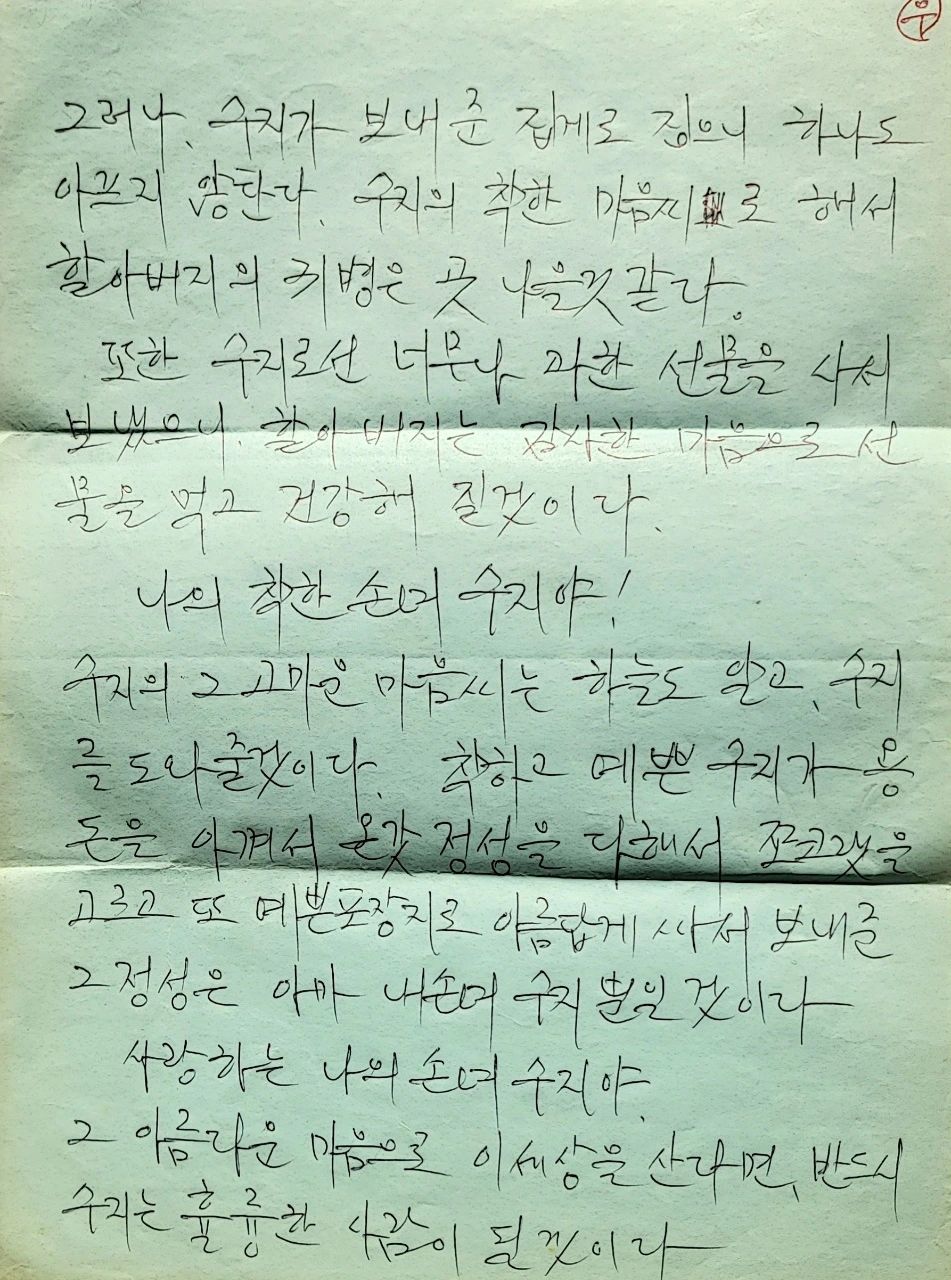 그러나, 수지가 보내준 집게로 집으니 하나도
아프지 않단다. 수지의 착한 마음씨로 해서
할아버지의 귀병은 곳 나을것 같다.
또한 수지로선 너무나 과한 선물을 사서
보냈으니, 할아버지는 감사한 마음으로 선
물을 먹고 건강해 질것이다.
나의 착한 손녀 수지야!
수지의 그 고마운 마음씨는 하늘도 알고, 수지
를 도와줄것이다. 착하고 예쁜 수지가 용
돈을 아껴서 온갖 정성을 다해서 쪼코렛을
고르고 또 예쁜포장지로 아름답게 싸서 보내준
그 정성은 아마 내손녀 수지 뿐일 것이다
사랑하는 나의 손녀 수지야.
그 아름다운 마음으로 이세상을 산다면, 반드시
수지는 휼륭한 사람이 될것이다